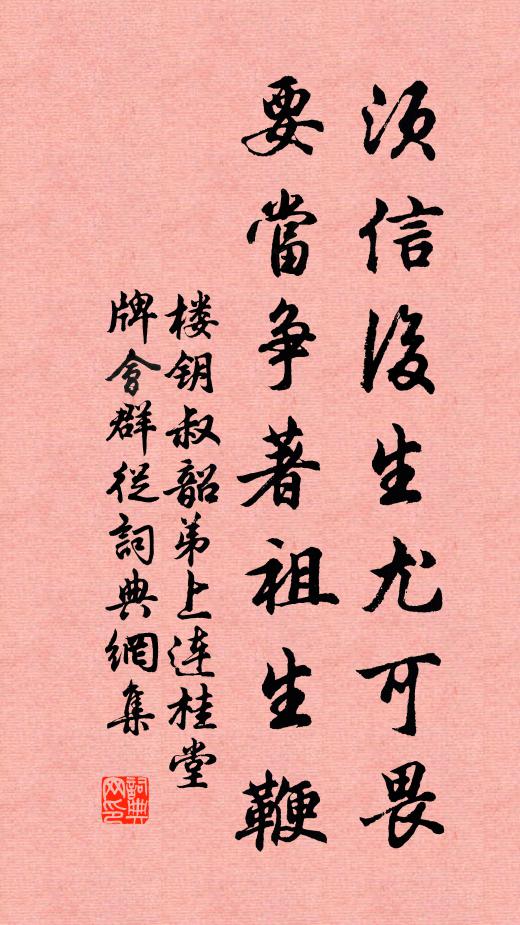 須信後生尤可畏
要當争著祖生鞭
楼钥叔韶弟上连桂堂
牌會群從詞典網集
詞典网印